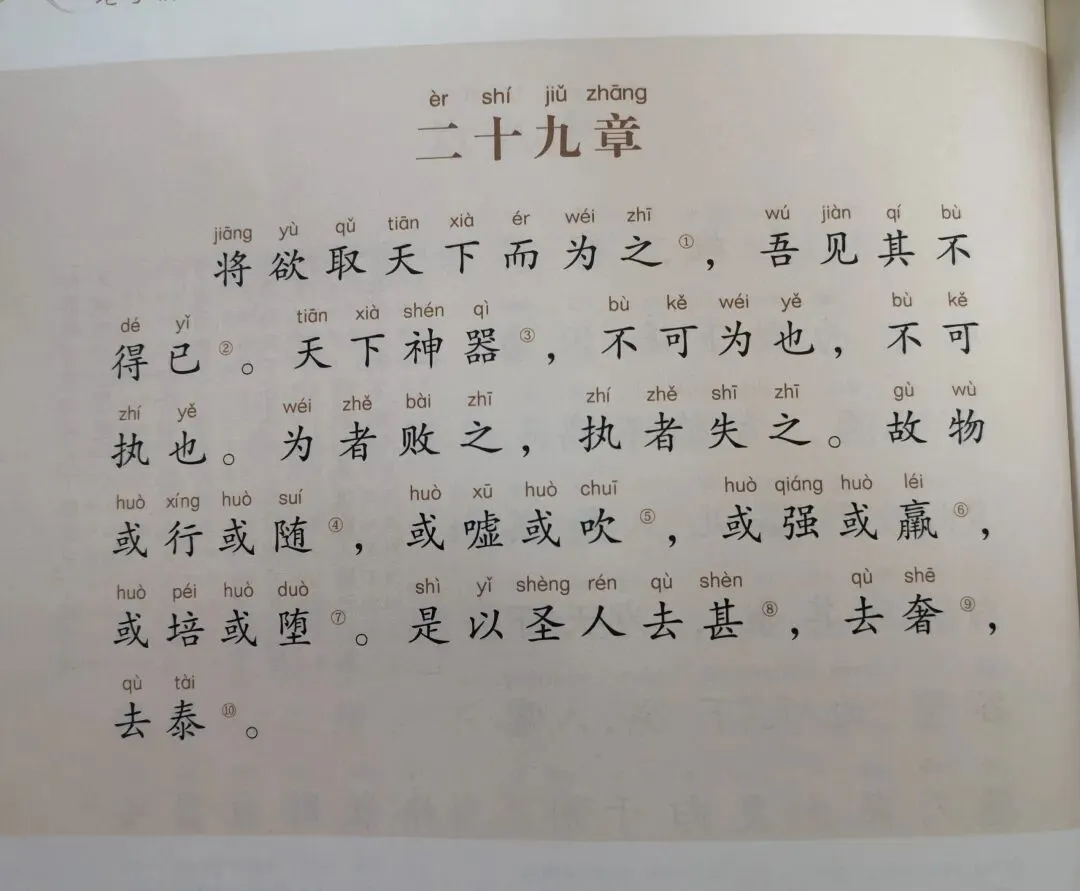 èr shí jiǔ zhāng
二十九章
jiāng yù qǔ tiān xià ér wéi zhī wú jiàn qí bù
将欲取天下而为之①，吾见其不
dé yǐ tiān xià shén qì bù kě wéi yě bù kě
得已②。天下神器③，不可为也，不可
zhí yě wéi zhě bài zhī zhí zhě shī zhī gù wù
执也。为者败之，执者失之。故物
huò xíng huò suí huò xū huò chuī huò qiáng huò léi
或行或随④，或嘘或吹⑤，或强或羸⑥，
huò péi huò duò shì yǐ shèng rén qù shèn qù shē
或培或堕⑦。是以圣人去甚⑧，去奢⑨，
qù tài
去泰⑩。